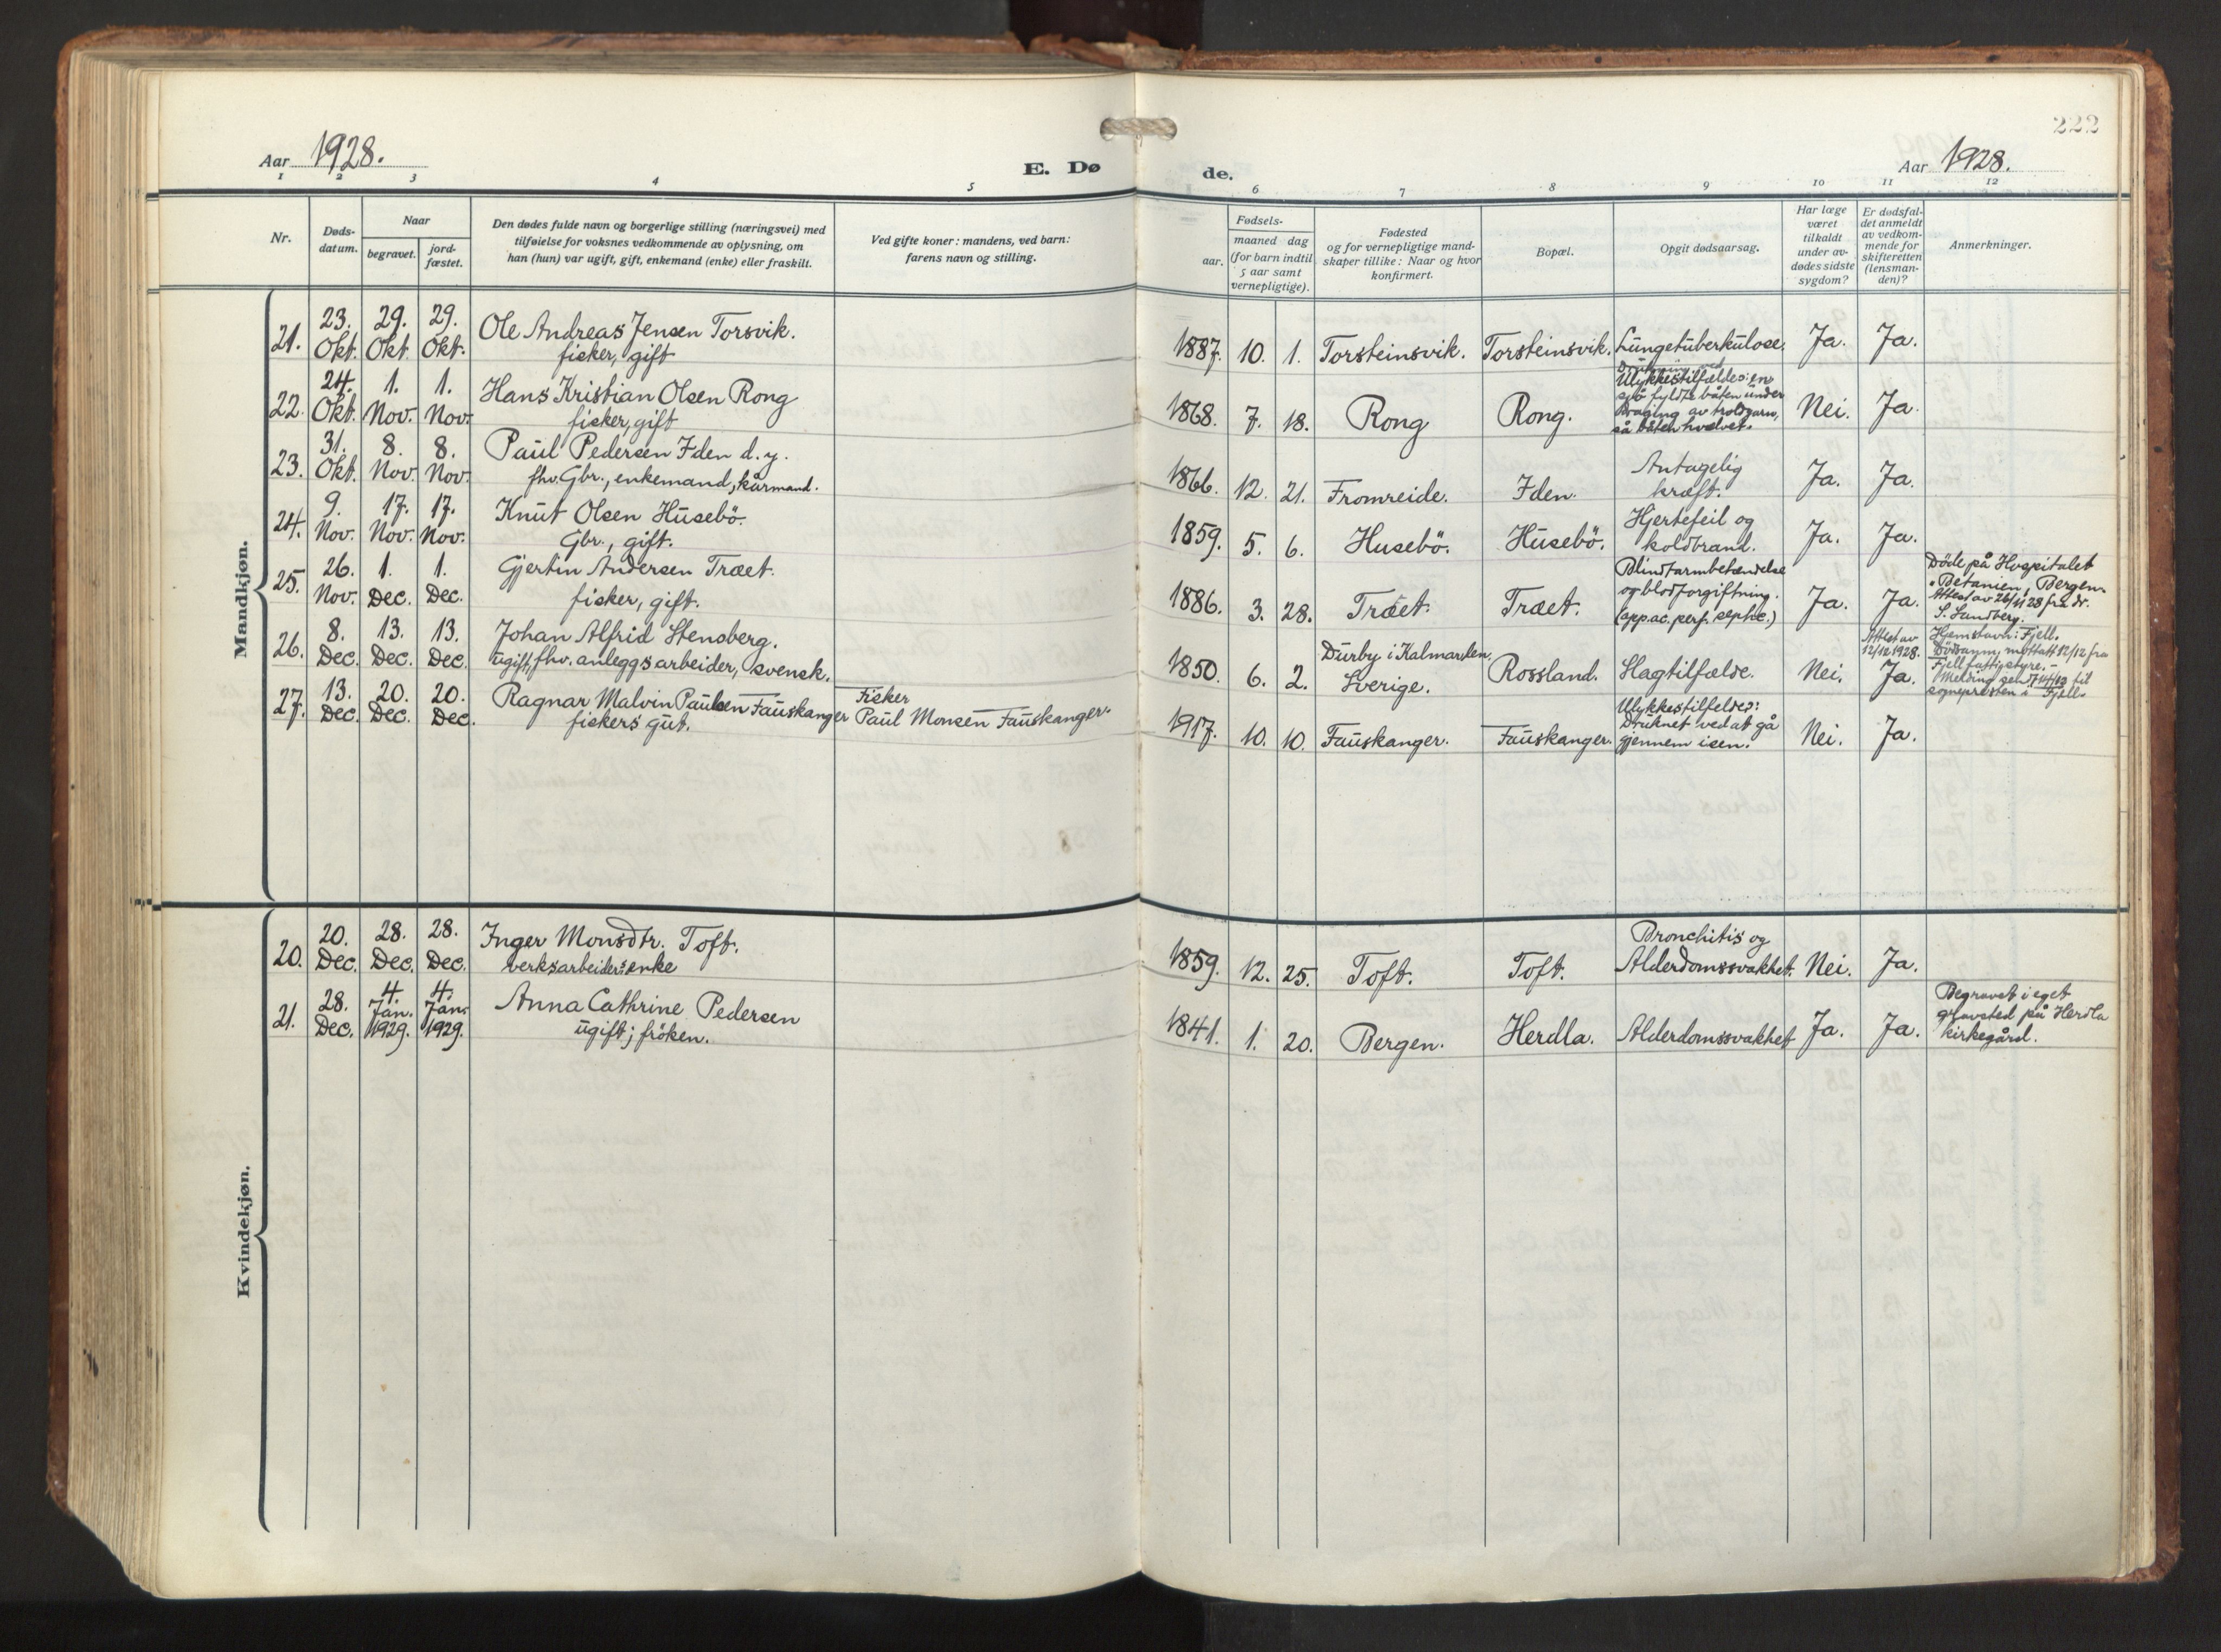 222
Aar 1928.
E. Dø
de.
Aar 1928.
1 2 3 4 5 6 7 8 9 10 11 12
Nr.
Døds-
datum.
Naar
begravet.
jord-
fæstet.
Den dødes fulde navn og borgerlige stilling (næringsvei) med
tilføielse for voksnes vedkommende av oplysning, om
han (hun) var ugift, gift, enkemand (enke) eller fraskilt.
Ved gifte koner: mandens, ved barn:
farens navn og stilling.
Fødsels-
aar.
maaned dag
(for barn indtil
5 aar samt
vernepligtige).
Fødested
og for vernepligtige mand-
skaper tillike: Naar og hvor
konfirmert.
Bopæl.
Opgit dødsaarsag.
Har læge
været
tilkaldt
under av-
dødes sidste
sygdom?
Er dødsfal-
det anmeldt
av vedkom-
mende for
skifteretten
(lensman-
den)?
Anmerkninger.
Mandkjøn.
21. 23. Okt. 29. Okt. 29. Okt.
Ole Andreas Jensen Torsvik.
fisker, gift
1887. 10. 1. Torsteinsvik. Torsteinsvik. Lungetuberkulose. Ja. Ja.
22. 24. Okt. 1. Nov. 1. Nov.
Hans Kristian Olsen Rong
fisker, gift
1868. 7. 18. Rong Rong.
Drukning ved
Ulykkestilfælde: en
sjø fyldte båten under
draging av troldgarn,
så båten hvælvet.
Nei. Ja.
23. 31. Okt. 8. Nov. 8. Nov.
Paul Pedersen Iden d.y.
fhv. Gbr., enkemand, kårmand.
1866. 12. 21. Fromreide. Iden.
Antagelig
kræft.
Ja. Ja.
24. 9. Nov. 17. Nov. 17. Nov.
Knut Olsen Husebö.
Gbr., gift.
1859. 5. 6. Husebö. Husebö.
Hjertefeil og
koldbrand.
Ja. Ja.
25. 26. Nov. 1. Dec. 1. Dec.
Gjertin Andersen Træet.
fisker, gift.
1886. 3. 28. Træet. Træet.
Blindtarmbetændelse
og blodforgiftning.
(app. ac. perf.
Ja. Ja.
Döde på Hospitalet
"Betanien", Bergen.
Attest av 26/11 28 fra dr.
S. Sandberg.
26. 8. Dec. 13. Dec. 13. Dec.
Johan Alfrid Stensberg.
ugift, fhv. anleggsarbeider, svensk.
1850. 6. 2.
Durby i Kalmarslen,
Sverige.
Rossland. Slagtilfælde. Nei.
Attest av
12/12 1928.
Ja.
Hjemstavn: Fjell.
Dödsanm. mottatt 12/12 fra
Fjell fattigstyre. -
Melding sendt 14/12 til
sognepresten i Fjell.
27. 13. Dec. 20. Dec. 20. Dec.
Ragnar Malvin Paulsen Fauskanger
fiskers gut.
Fisker
Paul Monsen Fauskanger.
1917. 10. 10. Fauskanger. Fauskanger.
Ulykkestilfelde:
Druknet ved at gå
gjennem isen.
Nei. Ja.
Kvindekjøn.
20. 20. Dec. 28. Dec. 28. Dec.
Inger Monsdtr. Toft.
verksarbeiders enke
1859. 12. 25. Toft. Toft.
Bronchitis og
Alderdomssvakhet.
Nei. Ja.
21. 28. Dec. 4. Jan. 1929. 4. Jan. 1929.
Anna Cathrine Pedersen
ugift; fröken.
1841. 1. 20. Bergen. Herdla. Alderdomssvakhet Ja. Ja.
Begravet i eget
gravsted på Herdla
kirkegård.